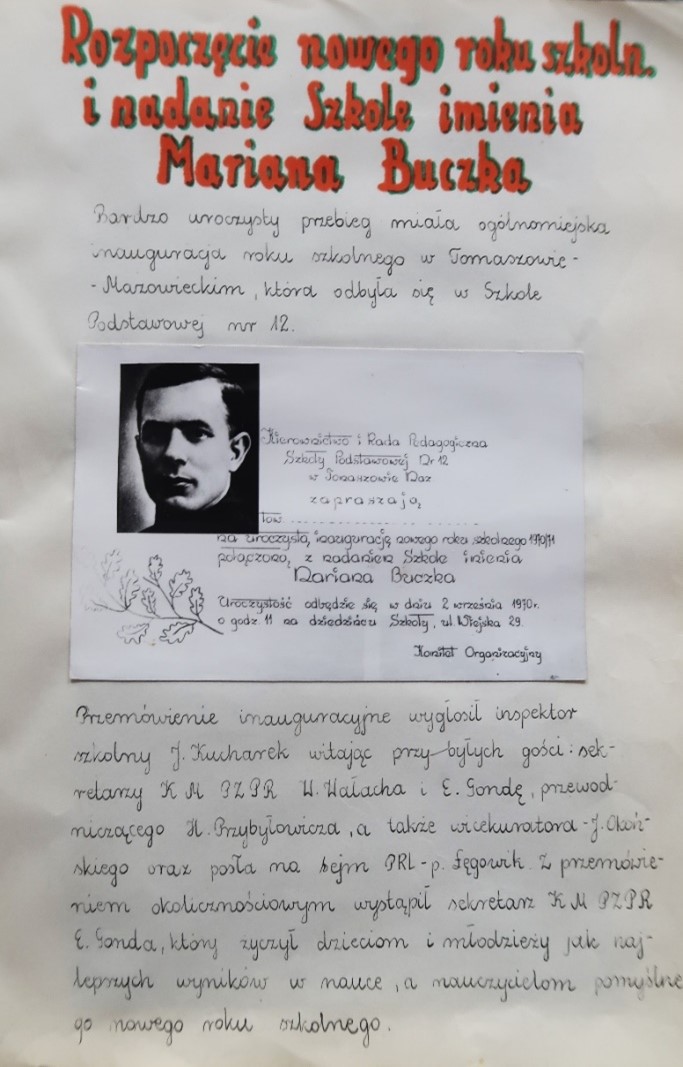 Rozpoczęcie nowego roku szkoln.
i nadanie Szkole imienia
Mariana Buczka
Bardzo uroczysty przebieg miała ogólnomiejska
inauguracja roku szkolnego w Tomaszowie -
- Mazowieckim, która odbyła się w Szkole
Podstawowej nr 12.
Kierownictwo i Rada Pedagogiczna
Szkoły Podstawowej Nr 12
w Tomaszowie Maz
zapraszają
tow. ..............................
na uroczystą inaugurację nowego roku szkolnego 1970/71
połączoną z nadaniem Szkole imienia
Mariana Buczka
Uroczystość odbędzie się w dniu 2 września 1970r.
o godz. 11 na dziedzińcu Szkoły, ul. Wiejska 29.
Komitet Organizacyjny
Przemówienie inauguracyjne wygłosił inspektor
szkolny J. Kucharek witając przybyłych gości: sek-
retarzy K M PZPR W. Wałacha i E. Gondę, przewod-
niczącego H. Przybyłowicza, a także wicekuratora - J. Okoń-
skiego oraz posła na sejm PRL - p. Łęgowik. Z przemówie-
niem okolicznościowym wystąpił sekretarz K M PZPR
E. Gonda, który życzył dzieciom i młodzieży jak naj-
lepszych wyników w nauce, a nauczycielom pomyślne
go nowego roku szkolnego.